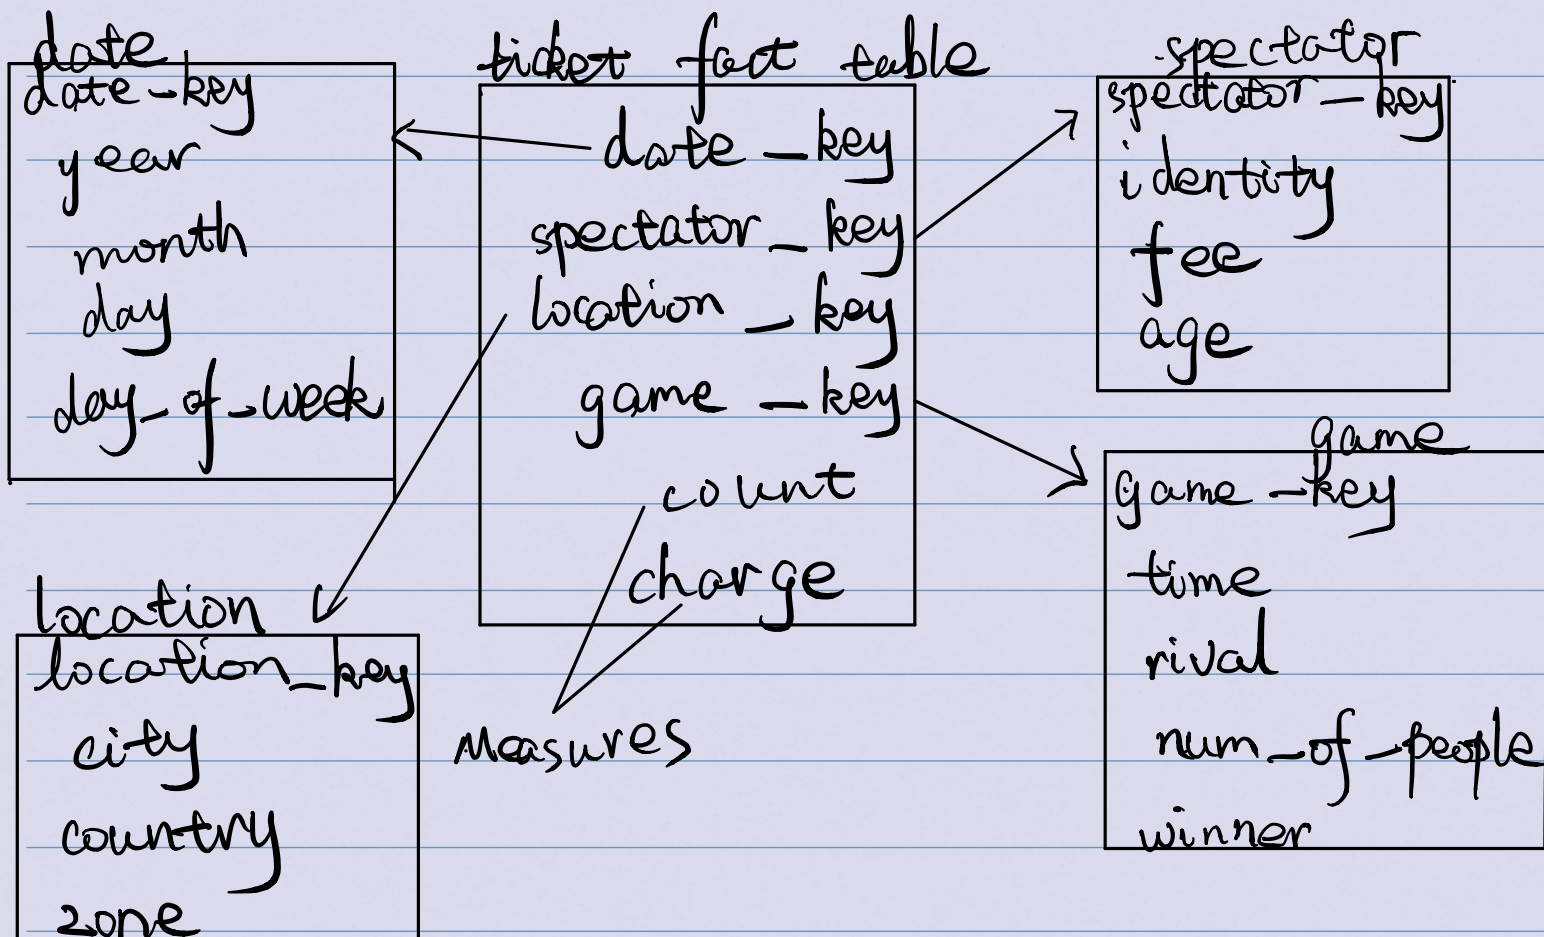 date
date_key
year
month
day
day_of_week
ticket fact table
date_key
spectator_key
location_key
game_key
count
charge
Measures
spectator
spectator_key
identity
fee
age
game
game_key
time
rival
num_of_people
winner
location
location_key
city
country
zone